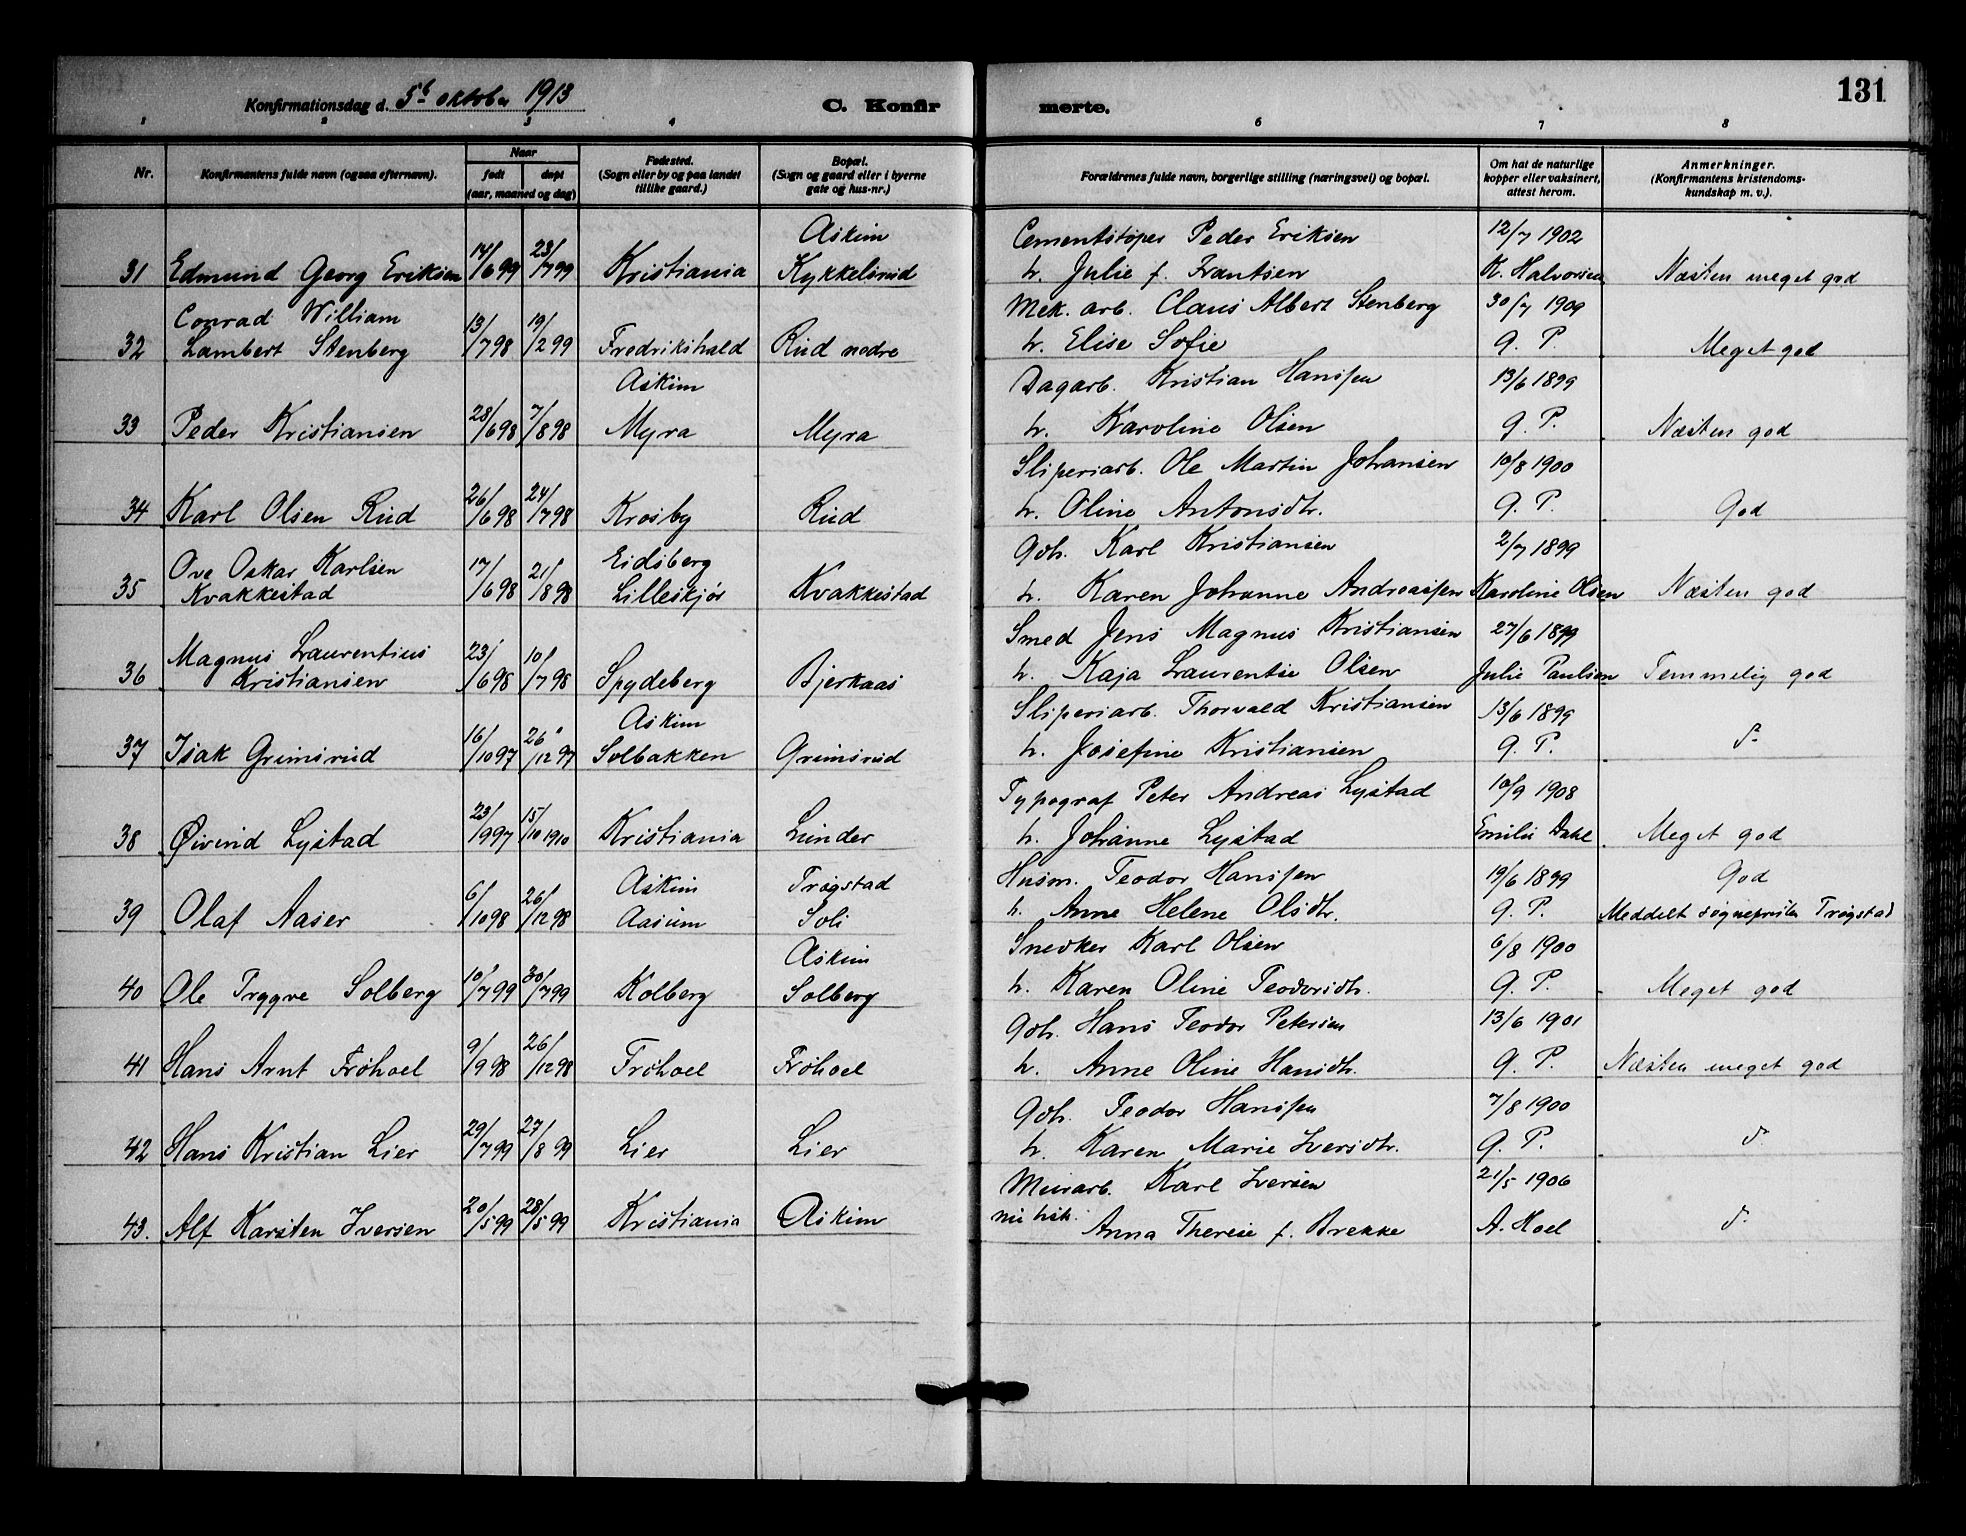 131
Konfirmationsdag d. 5t oktober 1913
C. Konfirmerte.
1 2 3 4 6 7 8
Nr.
Konfirmantens fulde navn (ogsaa efternavn).
Naar
født døpt
(aar, maaned og dag)
Fødested.
(Sogn eller by og paa landet
tillike gaard.)
Bopæl.
(Sogn og gaard eller i byerne
gate og hus-nr.)
Forældrenes fulde navn, borgerlige stilling (næringsvei) og bopæl.
Om hat de naturlige
kopper eller vaksinert,
attest herom.
Anmerkninger.
(Konfirmantens kristendoms-
kundskap m. v.).
Askim Cementstøper Peder Eriksen 12/7 1902
31 Edmund Georg Eriksen 14/6 99 23/7 99 Kristiania Kykkelsrud h. Julie f. Frantsen K. Halvorsen Næsten meget god
Conrad William Mek. arb. Claus Albert Stenberg 30/7 1909
32 Lambert Stenberg 13/7 98 19/2 99 Fredrikshald Rud nedre h. Elise Sofie g. P. Meget god
Askim Dagarb. Kristian Hanssen 13/6 1899
33 Peder Kristiansen 28/6 98 7/8 98 Myra Myra h. Karoline Olsen g. P. Næsten god
Sliperiarb. Ole Martin Johansen 10/8 1900
34 Karl Olsen Rud 26/6 98 24/7 98 Krosby Rud h. Oline Antonsdtr. g. P. God
Ove Oskar Karlsen Eidsberg Gdb. Karl Kristiansen 2/7 1899
35 Kvakkestad 17/6 98 21/8 98 Lilleskjør Kvakkestad h. Karen Johanne Andreassen Karoline Olsen Næsten god
Magnus Laurentius Smed Jens Magnus Kristiansen 27/6 1899
36 Kristiansen 23/6 98 10/7 98 Spydeberg Bjerkaas h. Kaja Laurentse Olsen Julie Paulsen Temmelig god
Askim Sliperiarb. Thorvald Kristiansen 13/6 1899
37 Isak Grimsrud 16/10 97 26/12 97 Solbakken Grimsrud h. Josefine Kristiansen g. P. d-
Typograf Peter Andreas Lystad 10/9 1908
38 Øivind Lystad 23/9 97 15/10 1910 Kristiania Lunder h. Johanne Lystad Emilie Dahl Meget god
Askim Trøgstad Husm. Teodor Hanssen 19/6 1899 God
39 Olaf Aaser 6/10 98 26/12 98 Aasum Soli h. Anne Helene Olsdtr. g. P. Meddelt sogneprsten Trøgstad
Askim Snedker Karl Olsen 6/8 1900
40 Ole Tryggve Solberg 10/7 99 30/7 99 Kolberg Solberg h. Karen Oline Teodorsdtr. g. P. Meget god
Gdb. Hans Teodor Petersen 13/6 1901
41 Hans Arnt Frøhoel 9/9 98 26/12 98 Frøhoel Frøhoel h. Anne Oline Hansdtr. g. P. Næsten meget god
Gdb. Teodor Hanssen 7/8 1900
42 Hans Kristian Lier 29/7 99 27/8 99 Lier Lier h. Karen Marie Iversdtr. g. P. d-
Murarb. Karl Iversen 21/5 1906
43. Alf Karsten Iversen 20/5 99 28/5 99 Kristiania Askim Anna Therese f. Brekke A. Hoel d-